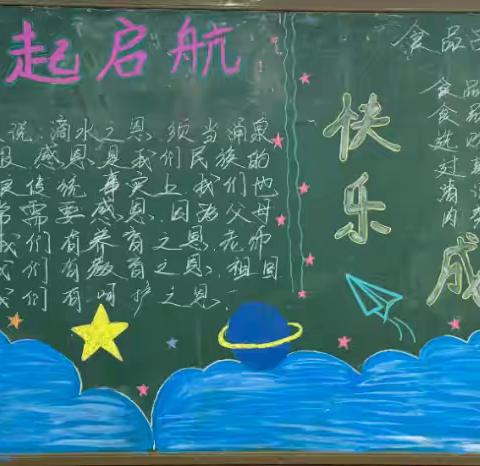 起启航
说:滴水之恩,须当涌泉
报,感恩是我们民族的
良传统,事实上,我们也
常需要感恩,因为父母
我们有养育之恩,老师
我们有教育之恩,祖国
我们有呵护之恩
快乐
成
食品
食品
食品
选
过
消
肉